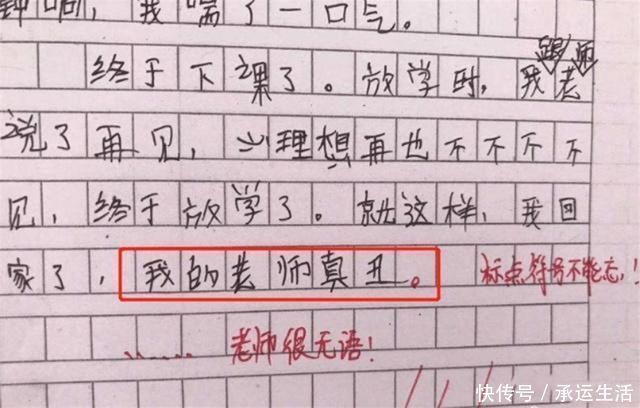 钟啊，我喘了一口气。
终于下课了。放学时，我跟老师
说了再见，心理想再也不不不不
见，终于放学了。就这样，我回
家了，我的老师真丑。 标点符号不能忘！
...... 老师很无语！
快传号/承运生活